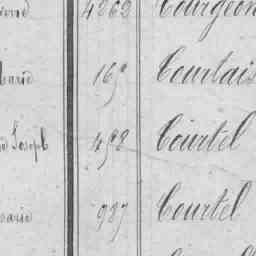 4262 Bourgeon
Marie 169 Courtais
Joseph 498 Courtel
Marie 987 Courtel